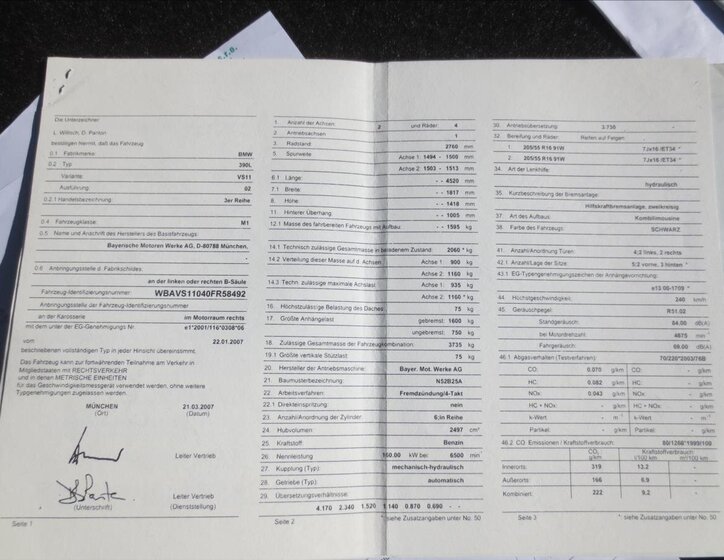 s.r.o.
Die Unterzeichner
L. Willisch, D. Panton
bestätigen hiermit, daß das Fahrzeug
0.1 Fabrikmarke: BMW
0.2 Typ 390L
Variante: VS11
Ausführung: 02
0.2.1 Handelsbezeichnung: 3er Reihe
0.4 Fahrzeugklasse: M1
0.5 Name und Anschrift des Herstellers des Basisfahrzeugs:
Bayerische Motoren Werke AG, D-80788 München,
0.6 Anbringungsstelle d. Fabrikschildes:
an der linken oder rechten B-Säule
Fahrzeug-Identifizierungsnummer: WBAVS11040FR58492
Anbringungsstelle der Fahrzeug-Identifizierungsnummer
an der Karosserie im Motorraum rechts
mit dem unter der EG-Genehmigungs Nr. e1*2001/116*0308*06
vom 22.01.2007
beschriebenen vollständigen Typ in jeder Hinsicht übereinstimmt.
Das Fahrzeug kann zur fortwährenden Teilnahme am Verkehr in
Mitgliedstaaten mit RECHTSVERKEHR
und in denen METRISCHE EINHEITEN
für das Geschwindigkeitsmessgerät verwendet werden, ohne weitere
Typgenehmigungen zugelassen werden.
MÜNCHEN 21.03.2007
(Ort) (Datum)
Leiter Vertrieb
Leiter Vertrieb
(Unterschrift) (Dienststellung)
Seite 1
1. Anzahl der Achsen: 2 und Räder: 4
2. Antriebsachsen 1
3. Radstand: 2760 mm
5. Spurweite Achse 1: 1494 - 1500 mm
Achse 2: 1503 - 1513 mm
6.1 Länge: -- 4520 mm
7.1 Breite -- 1817 mm
8. Höhe -- 1418 mm
11. Hinterer Überhang: -- 1005 mm
12.1 Masse des fahrbereiten Fahrzeugs mit Aufbau: -- 1595 kg
14.1 Technisch zulässige Gesamtmasse in beladenem Zustand: 2060 * kg
14.2 Verteilung dieser Masse auf d. Achsen: Achse 1: 900 kg
Achse 2: 1160 kg
14.3 Techn. zulässige maximale Achslast: Achse 1: 935 kg
Achse 2: 1160 * kg
16. Höchstzulässige Belastung des Daches 75 kg
17. Größte Anhängelast gebremst: 1600 kg
ungebremst: 750 kg
18. Zulässige Gesamtmasse der Fahrzeugkombination: 3735 kg
19.1 Größte vertikale Stützlast: 75 kg
20. Hersteller der Antriebsmaschine: Bayer. Mot. Werke AG
21. Baumusterbezeichnung: N52B25A
22. Arbeitsverfahren: Fremdzündung/4-Takt
22.1 Direkteinspritzung: nein
23. Anzahl/Anordnung der Zylinder: 6;in Reihe
24. Hubvolumen: 2497 cm³
25. Kraftstoff: Benzin
26. Nennleistung 160.00 kW bei 6500 min
27. Kupplung (Typ): mechanisch-hydraulisch
28. Getriebe (Typ): automatisch
29. Übersetzungsverhältnisse:
4.170 2.340 1.520 1.140 0.870 0.690 - -
Seite 2 *: siehe Zusatzangaben unter No. 50
30. Antriebsübersetzung 3.736 -
32. Bereifung und Räder: Reifen auf Felgen
1: 205/55 R16 91W 7Jx16 IET34 *
2: 205/55 R16 91W 7Jx16 IET34 *
34. Art der Lenkhilfe:
hydraulisch
35. Kurzbeschreibung der Bremsanlage:
Hilfskraftbremsanlage, zweikreisig
37. Art des Aufbaus: Kombilimousine
38. Farbe des Fahrzeugs: SCHWARZ
41. Anzahl/Anordnung Türen: 4;2 links, 2 rechts
42.1 Anzahl/Lage der Sitze: 5;2 vorne, 3 hinten *
43.1 EG-Typengenehmigungszeichen der Anhängevorrichtung:
e13*00-1709 *
44. Höchstgeschwindigkeit: 240 km/h
45. Geräuschpegel: R51.02
Standgeräusch: 84.00 dB(A)
bei Motordrehzahl: 4875 min
Fahrgeräusch: 69.00 dB(A)
46.1 Abgasverhalten (Testverfahren): 70/220*2003/76B
CO: 0.070 g/km CO: - g/km
HC: 0.082 g/km HC: - g/km
NOx: 0.043 g/km NOx: - g/km
HC + NOx: - g/km HC + NOx: - g/km
k-Wert: - m⁻¹ k-Wert: - m⁻¹
Partikel: - g/km Partikel: - g/km
46.2 CO Emissionen / Kraftstoffverbrauch: 80/1268*1999/100
CO₂ Kraftstoffverbrauch:
g/km l/100 km m³/100 km
Innerorts: 319 13.2 -
Außerorts: 166 6.9 -
Kombiniert: 222 9.2 -
Seite 3 *: siehe Zusatzangaben unter No. 50